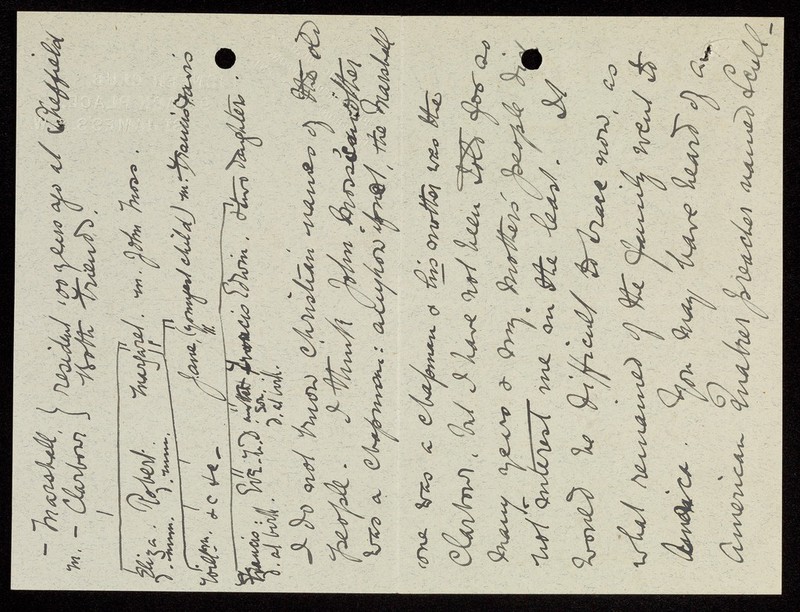 - Marshall. } resident 100 years ago at Sheffield
m. - Clarbour } both Friends.
Eliza. Robert. Margaret. m. John Moss.
d. unm. d. unm.
William. &c &c - Jane, (youngest child) m. Francis Davis
Francis: Wm. F.D. Francis Edwin. & two daughters.
d. at birth. son. d. at birth.
I do not know Christian names of the old
people. I think John Moss's mother
was a Chapman: anyhow the Marshall
one was a Chapman & his mother was the
Clarbour. but I have not been told for so
many years & my mother's people did
not interest me in the least. It
would be difficult to trace now, as
what remained of the family went to
America. You may have heard of an
American Quaker preacher named Scull -